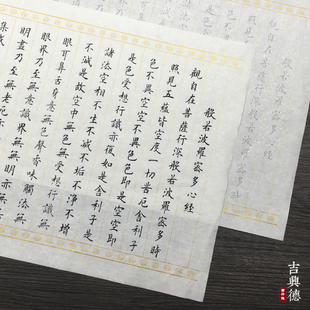 般若波羅蜜多心經
觀自在菩薩行深般若波羅蜜多時
照見五蘊皆空度一切苦厄舍利子
色不異空空不異色色即是空空即
是色受想行識亦復如是舍利子是
諸法空相不生不滅不垢不淨不增
不減是故空中無色無受想行識
眼耳鼻舌身意無色聲香味觸法無
眼界乃至無意識界無無明亦無
明盡乃至無老死亦
集滅
吉典德